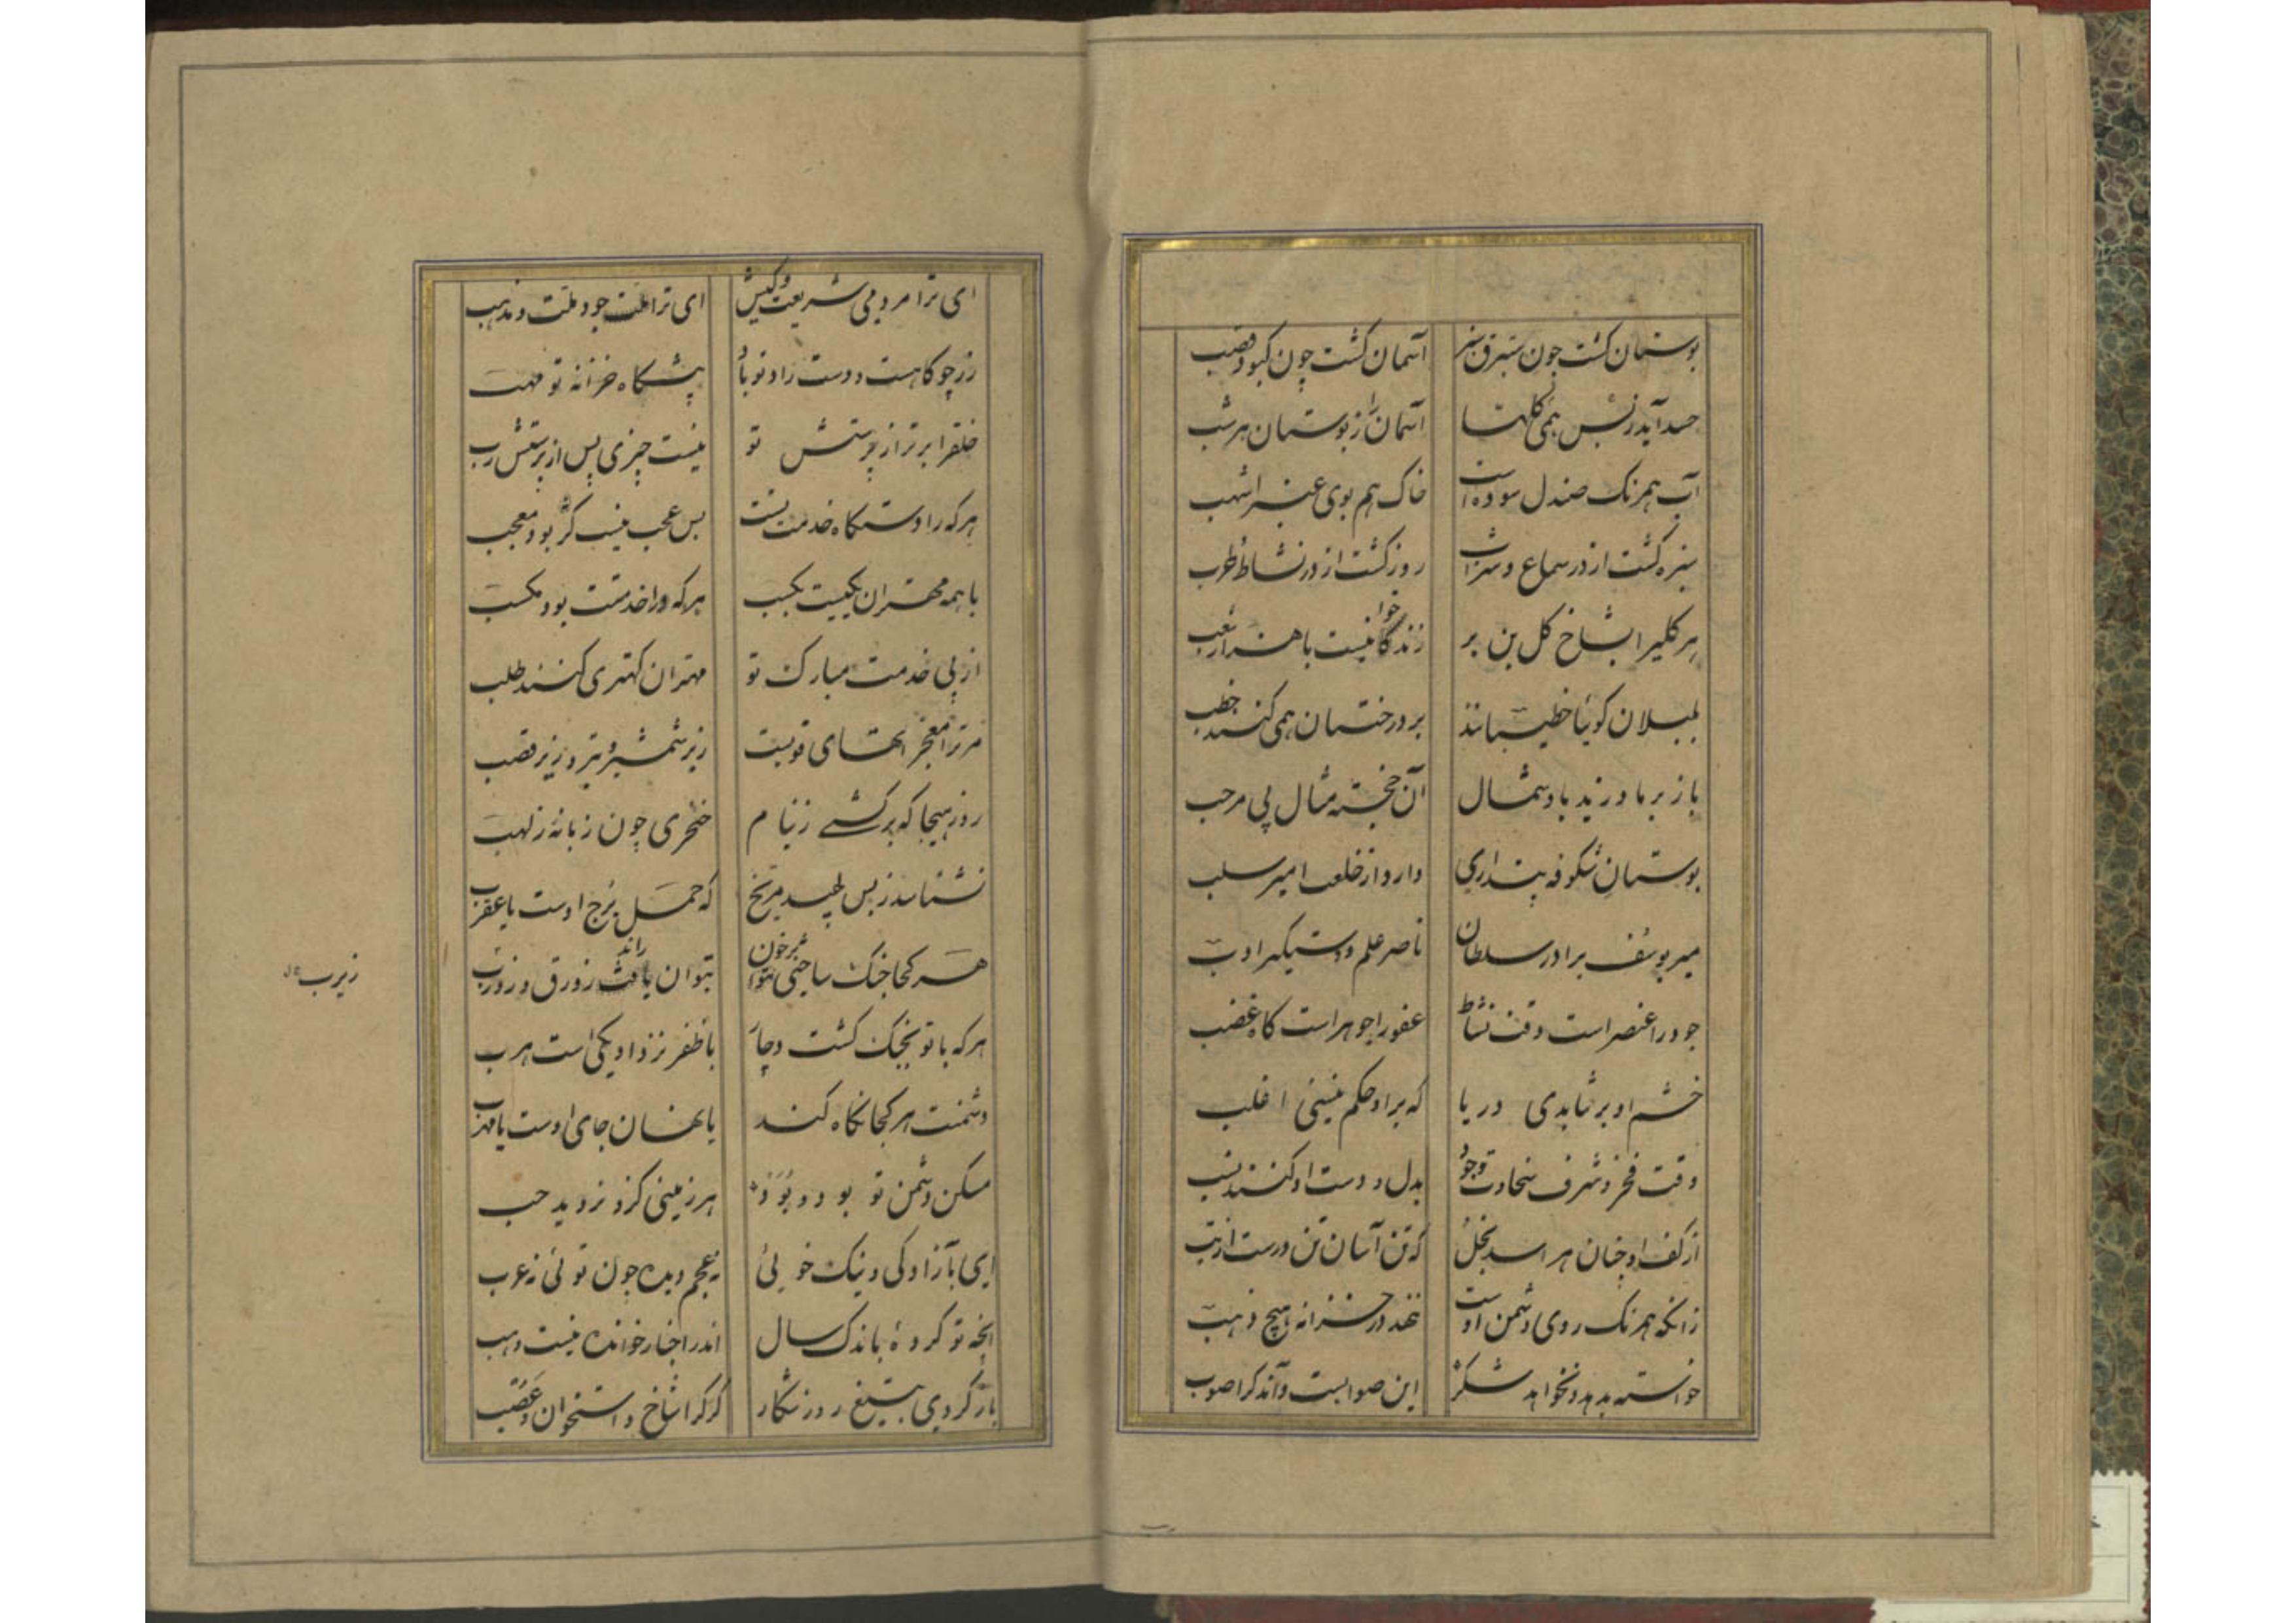 بوستان کشت چون ستبرق سبز آسمان کشت چون کبود قصب
حسد آید ز بس همی کلها آسمان را ز بوستان هر شب
آب همرنک صندل سوده است خاک هم بوی عنبر اشهب
سبزه کشت از در سماع و شراب روز کشت از در نشاط و طرب
هر کلیرا بشاخ کل بن بر زندخوانیست با هزار شعب
بلبلان کوئیا خطیبانند بر درختان همی کنند خطب
باز بر ما وزید باد شمال آن خجسته مثال پی مرحب
بوستان شکوفه پنداری دارد از خلعت امیر سلب
میر یوسف برادر سلطان ناصر علم و دستکیر ادب
جود را عنصر است وقت نشاط عفو را جوهر است کاه غضب
خشم او بر نتابدی دریا که بر او حکم نیستی اغلب
وقت فخر و شرف سخاوت وجود بدل و دست او کنند نسب
از کف او چنان هراسد بخل که تن آسان تن درست از تب
زانکه همرنک روی دشمن اوست ننهد در خزانه هیچ ذهب
خواسته بدهد و نخواهد شکر این صوابست و آن دکر اصوب
ای ترا مردمی شریعت و کیش ای ترا جود ملت و مذهب
زر چو کاهست و دست راد تو باد پیشکاه خزانه تو مهب
خلقرا برتر از پرستش تو نیست چیزی پس از پرستش رب
هر که را دستکاه خدمت تست بس عجب نیست کر بود معجب
با همه مهتران بکیست بکسب هر که ورا خدمتت بود مکسب
از پی خدمت مبارک تو مهتران کهتری کنند طلب
مر ترا معجز اتهای قویست زیر شمشیر تیز و زیر قصب
روز هیجا که برکشی ز نیام خنجری چون زبانه ز لهب
نشناسد ز بس طپید مریخ که حمل برج اوست یا عقرب
هر کجا جنک ساختی بر خون بتوان راند زورق و زبزب
زیزب
هر که با تو بجنک کشت دچار با ظفر نزد او یکی است هرب
دشمنت هر کجا نکاه کند یا نهان جای اوست یا مهرب
مسکن دشمن تو بود و بود هر زمینی کزو نروید حب
ای بآزادکی و نیک خوئی نه عجم دیده چون توئی نه عرب
انچه تو کردهٔ باندک سال اندر اخبار خوانده نیست وهب
باز کردی بتیغ روز شکار کرک را شاخ و استخوان و عصب